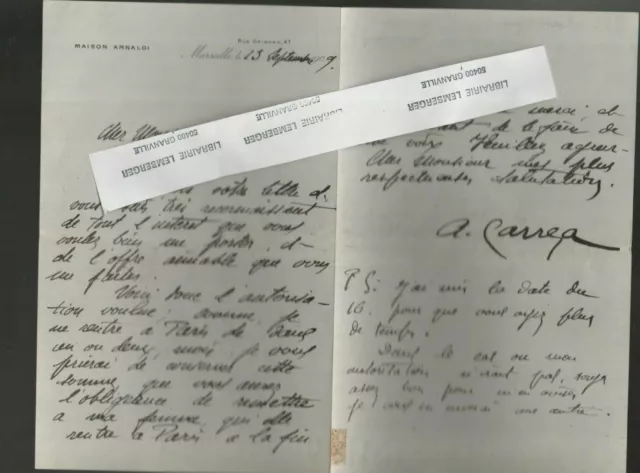 MAISON ARNALDI
Rue Grignan, 47
Marseille le 13 Septembre 1909
Cher Mon
LIBRAIRIE LEMBERGER
50400 GRANVILLE
LIBRAIRIE LEMBERGER
50400 GRANVILLE
LIBRAIRIE LEMBERGER
50400 GRANVILLE
votre lettre et
vous suis très reconnaissant
de tout l'interet que vous
voulez bien me porter et
de l'offre aimable que vous
me faites.
Voici donc l'autorisa-
tion voulue. comme je
ne rentre à Paris de
un ou deux mois je vous
prierai de conserver cette
somme, que vous aurez
l'obligeance de remettre
a ma femme, qui elle
rentre à Paris à la fin
merci, et
de la faire
de vous Veuillez agréer
Cher Monsieur mes plus
respectueuses salutations.
A. Carrega
P S: J'ai mis la date du
16. pour que vous ayez plus
de temps.
Dans le cas ou mon
autorisation n'irait pas, soyez
assez bon pour m'en aviser
je vous en enverrai une autre.